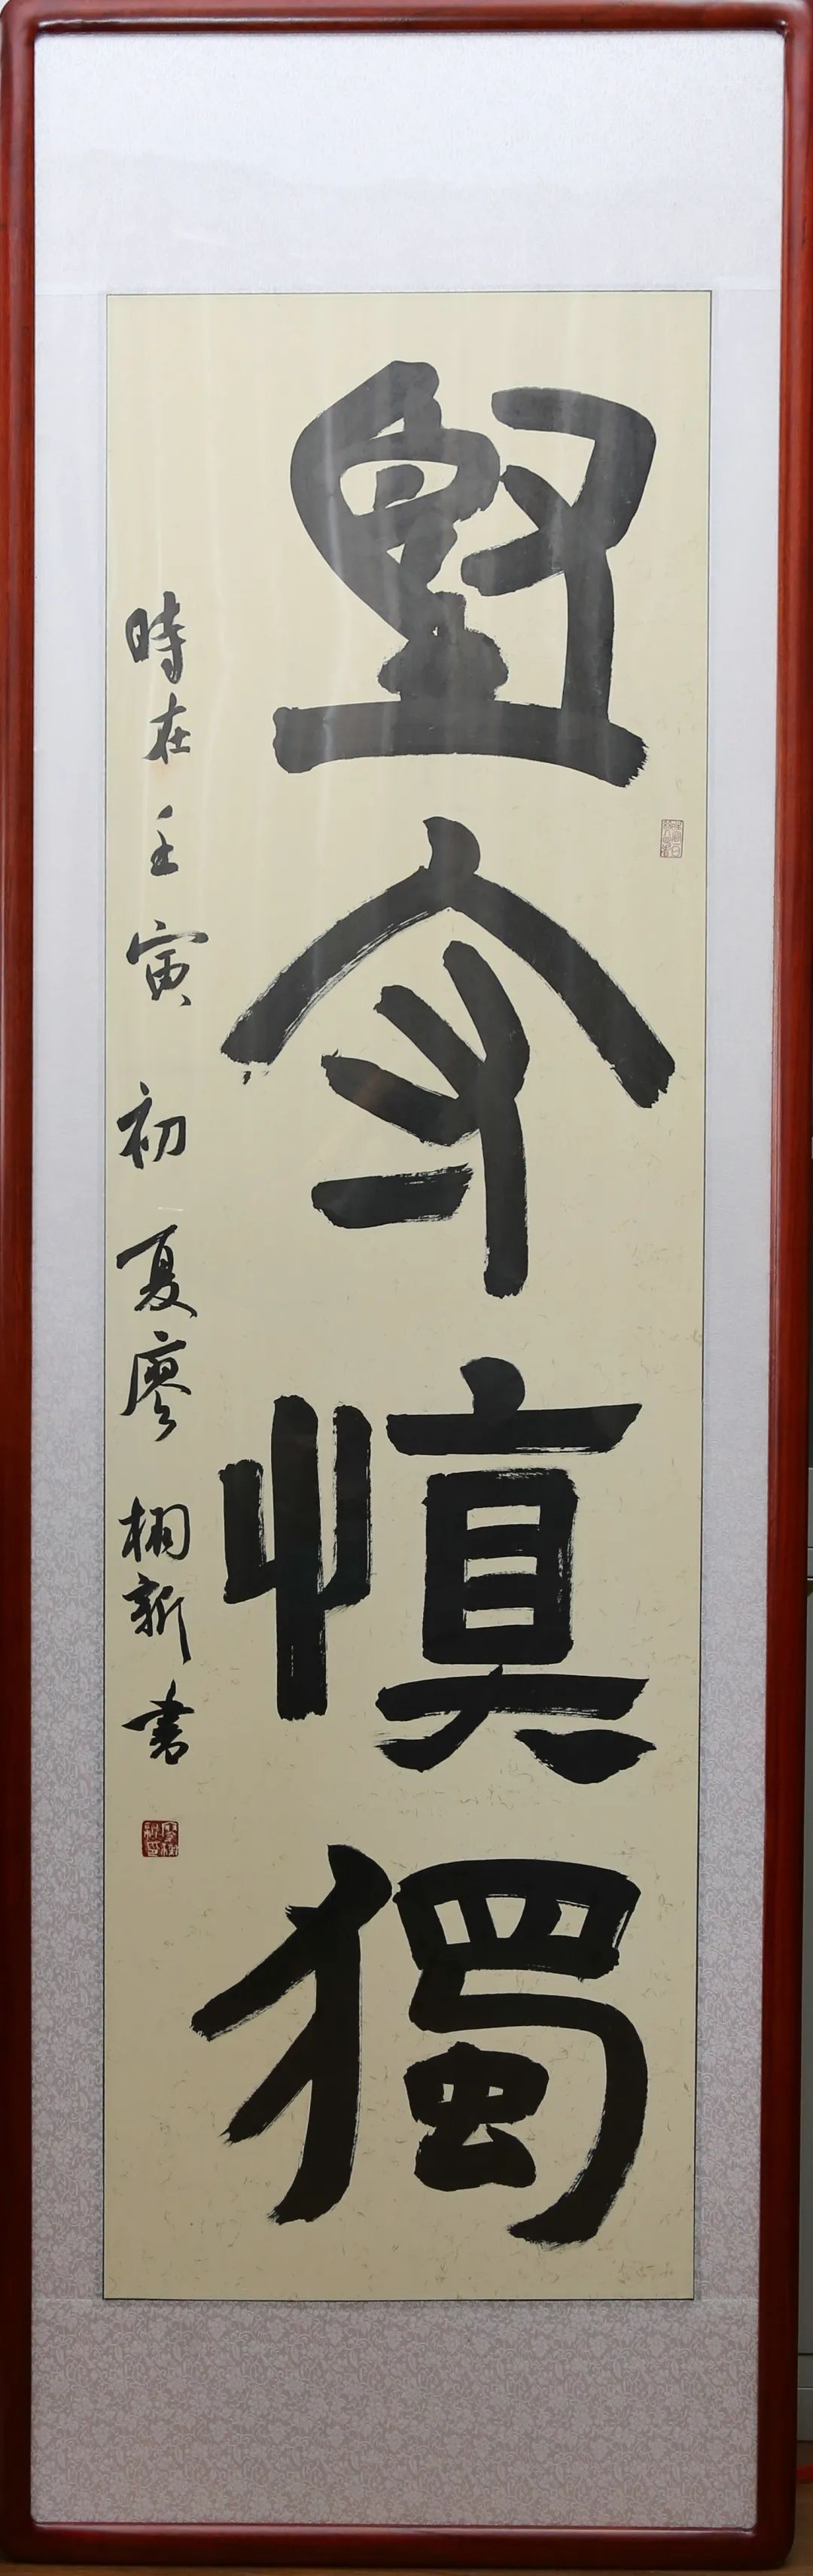 堅守慎獨
時在壬寅初夏廖栩新書